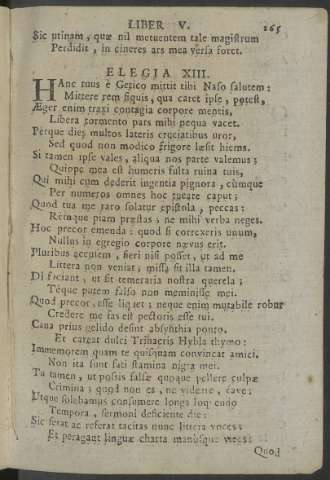 LIBER V. 265
Sic utinam, quæ nil metuentem tale magistrum
Perdidit, in cineres ars mea versa foret.
ELEGIA XIII.
HAnc tuus è Getico mittit tibi Naso salutem:
Mittere rem siquis, qua caret ipse, potest,
Æger enim traxi contagia corpore mentis,
Libera tormento pars mihi nequa vacet.
Perque dies multos lateris cruciatibus uror,
Sed quod non modico frigore læsit hiems.
Si tamen ipse vales, aliqua nos parte valemus;
Quippe mea est humeris fulta ruina tuis,
Qui mihi cum dederit ingentia pignora, cùmque
Per numeros omnes hoc tueare caput;
Quod tua me raro solatur epistola, peccas:
Remque piam præstas, ne mihi verba neges.
Hoc precor emenda: quod si correxeris unum,
Nullus in egregio corpore nævus erit.
Pluribus accusem, fieri nisi posset, ut ad me
Littera non veniat; missa sit illa tamen.
Di faciant, ut sit temeraria nostra querela;
Téque putem falso non meminisse mei.
Quod precor, esse liquet: neque enim mutabile robur
Credere me fas est pectoris esse tui.
Cana prius gelido desint absynthia ponto,
Et careat dulci Trinacris Hybla thymo:
Immemorem quam te quisquam convincat amici.
Non ita sunt fati stamina nigra mei.
Tu tamen, ut possis falsæ quoque pellere culpæ
Crimina; quod non es, ne videare, cave:
Utque solebamus consumere longa loquendo
Tempora, sermoni deficiente die:
Sic ferat ac referat tacitas nunc littera voces;
Et peragant linguæ charta manúsque vices:
Quod